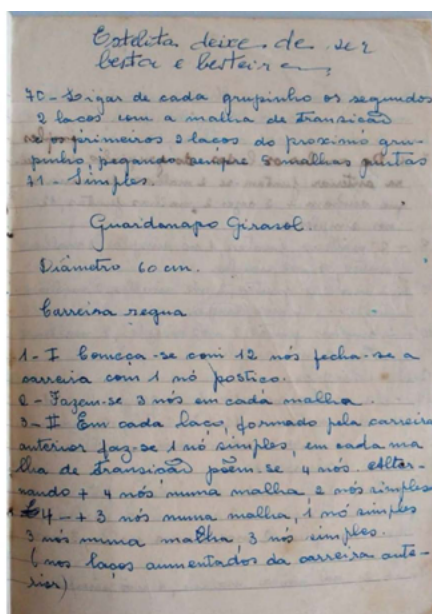 Estelita deixe de ser
besta e besteira
70 - Ligar de cada grupinho os segundos
2 laços com a malha de transicão
e os primeiros 2 laços do proximo gru-
pinho, pegando sempre 5 malhas juntas
71 - Simples.
Guardanapo Girasol
Diâmetro 60 cm.
Carreira regua
1 - I Comcça-se com 12 nós fecha-se a
carreira com 1 nó postico.
2 - Fazem-se 3 nós em cada malha.
3 - II Em cada laço, formado pela carreira
anterior faz-se 1 nó simples, em cada ma
lha de transicão põem-se 4 nós. Alter-
nando + 4 nós numa malha, 2 nós simples
4 - + 3 nós numa malha, 1 nó simples
3 nós numa malha, 3 nós simples.
(nos laços aumentados da carreira ante-
rior)